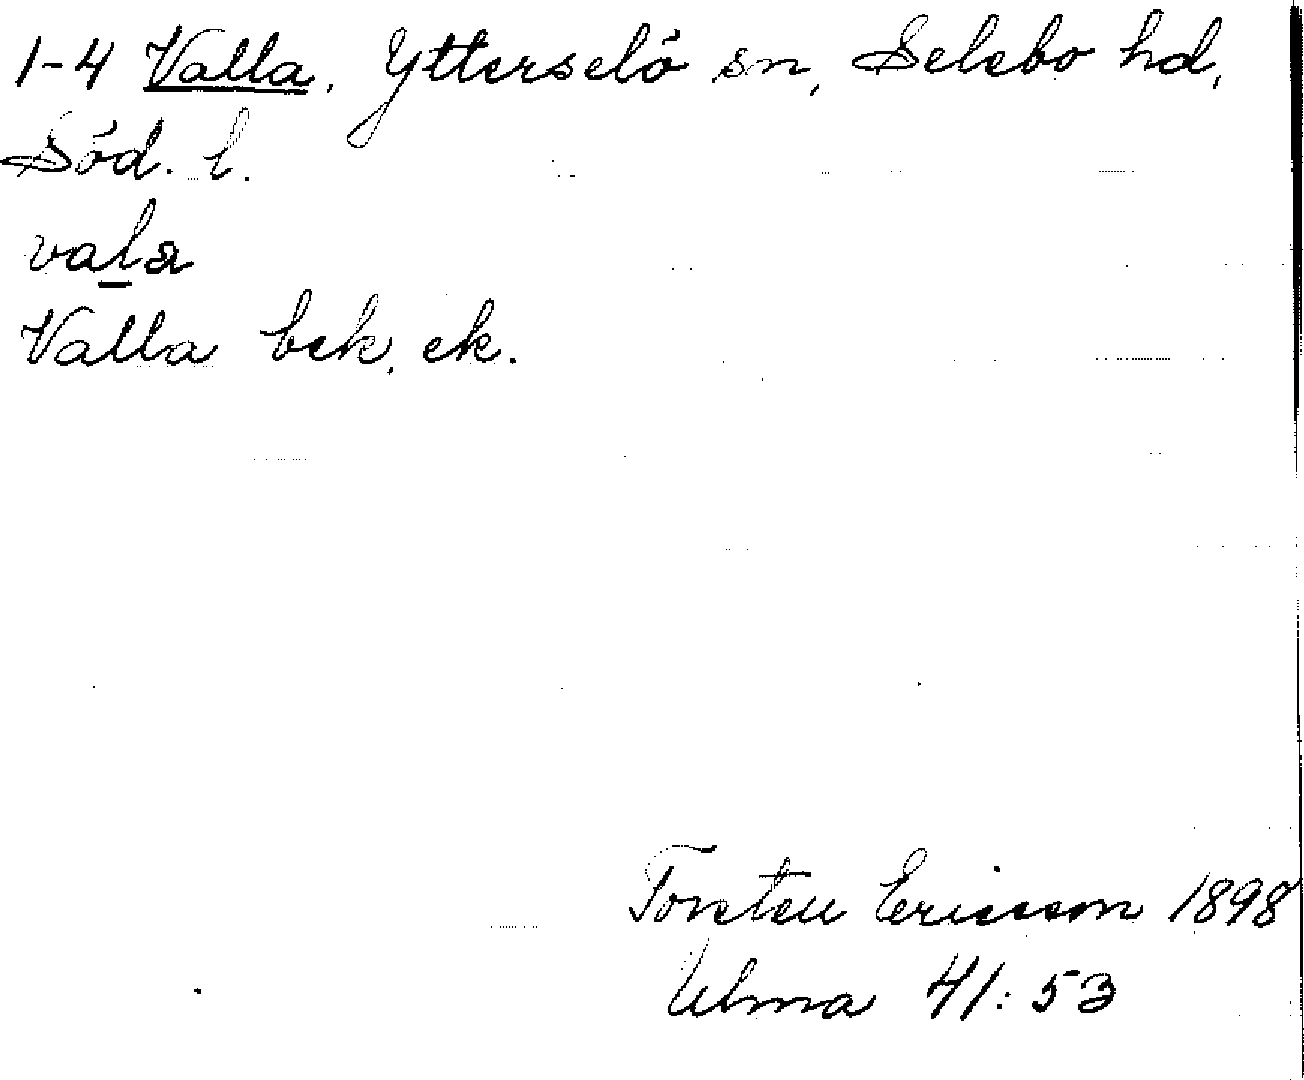 1-4 Valla, Ytterselö sn, Selebo hd,
Söd. l.
vala
Valla bek, ek.
Torsten Ericsson 1898
Ulma 41:53